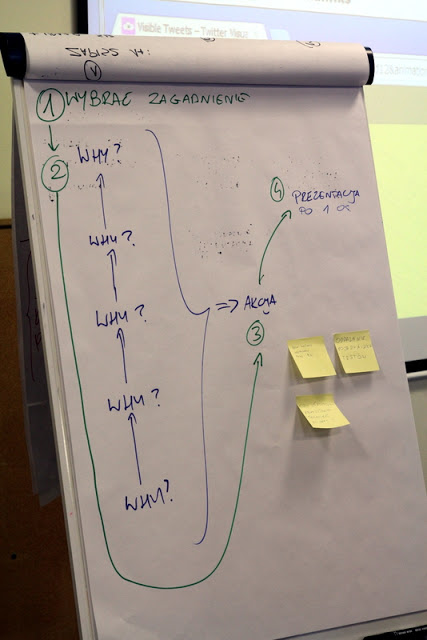 Visible Tweets – Twitter Visu
ZAPISZ
1 WYBRAĆ ZAGADNIENIE
2
WHY?
WHY?
WHY?
WHY?
WHY?
=> AKCJA
3
4
PREZENTACJA
PO 1 OS